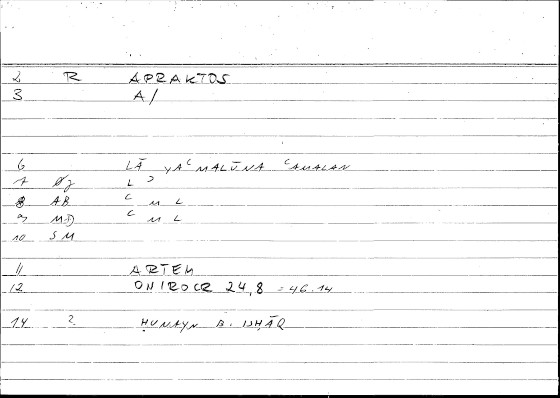 2 R APRAKTOS
3 A/
6 LĀ YAʿMALŪNA ʿAMALAN
7 Øz L ʾ
8 AB ʿ M L
9 MD ʿ M L
10 SM
11 ARTEM
12 ONIROCR 24,8 = 46.14
14 2 ḤUNAYN B. ISḤĀQ